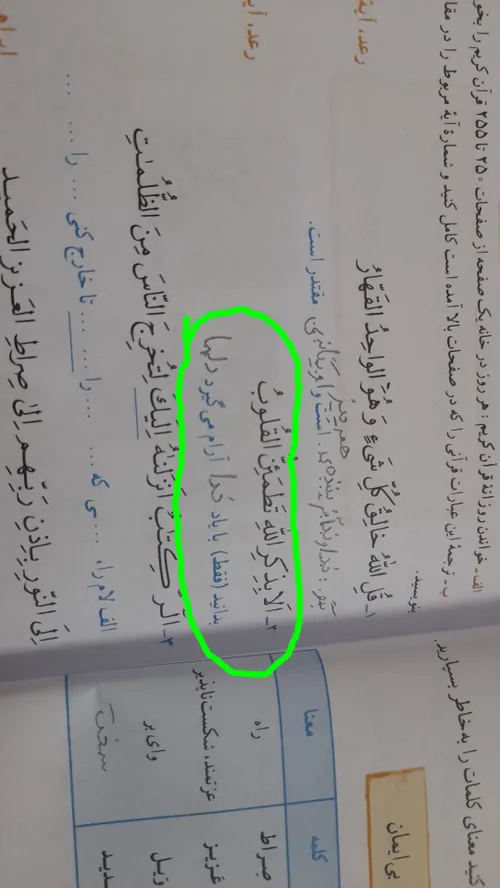 کنید معنای کلمات را به خاطر بسپارید.
بی ایمان
کلمه
معنا
صراط
راه
عزیز
عزتمند، شکست ناپذیر
ویل
وای بر
سخت
الف- خواندن روزانهٔ قرآن کریم: هر روز در خانه یک صفحه از صفحات ۲۵۰ تا ۲۵۵ قرآن کریم را
ب- ترجمهٔ این عبارات قرآنی را که در صفحات بالا آمده است کامل کنید و شمارهٔ آیهٔ مربوط را در
بنویسید.
۱- قُلِ اللّٰهُ خالِقُ كُلِّ شَیءٍ وَ هُوَ الواحِدُ القَهّارُ
رعد، آیهٔ
بگو: خداوند آفریننده هر چیز است و او یگانه‌ی مقتدر است.
۲- اَلا بِذِكرِ اللّٰهِ تَطمَئِنُّ القُلوبُ
رعد، آیهٔ
بدانید (فقط) با یاد خدا آرام می گیرد دلها
۳- الٓر كِتابٌ اَنزَلنٰهُ اِلَیكَ لِتُخرِجَ النّاسَ مِنَ الظُّلُمٰتِ
الف لام راء، .... ی که .... ... را ... ... تا خارج کنی ... را ... ...
اِلَی النّورِ بِاِذنِ رَبِّهِم اِلیٰ صِراطِ العَزیزِ الحَمیدِ